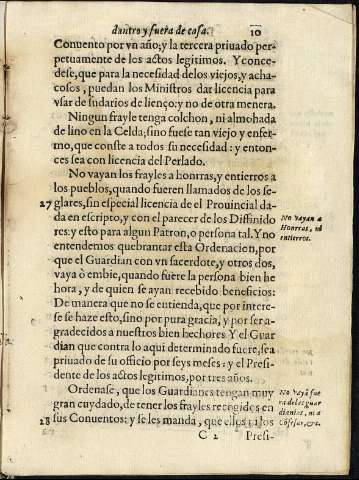 dentro y fuera de casa. 10
Conuento por vn año; y la tercera priuado per-
petuamente de los actos legitimos. Y conce-
dese, que para la necesidad delos viejos, y acha-
cosos, puedan los Ministros dar licencia para
vsar de sudarios de lienço; y no de otra menera.
Ningun frayle tenga colchon, ni almohada
de lino en la Celda; sino fuese tan viejo y enfer-
mo, que conste a todos su necesidad: y enton-
ces sea con licencia del Perlado.
No vayan los frayles a honrras, y entierros a
los pueblos, quando fueren llamados de los se-
27 glares, sin especial licencia de el Prouincial da-
da en escripto, y con el parecer de los Diffinido
res: y esto para algun Patron, o persona tal. Y no
entendemos quebrantar esta Ordenacion, por
que el Guardian con vn sacerdote, y otros dos,
vaya ò embie, quando fuere la persona bien he
hora, y de quien se ayan recebido beneficios:
De manera que no se entienda, que por intere-
se se haze esto, sino por pura gracia, y por ser a-
gradecidos a nuestros bien hechores. Y el Guar
dian que contra lo aqui determinado fuere, sea
priuado de su officio por seys meses: y el Presi-
dente de los actos legitimos, por tres años.
Ordenase, que los Guardianes tengan muy
gran cuydado, de tener los frayles recogidos en
28 sus Conuentos: y se les manda, que ellos ni los
C 2 Presi-
No vayan a
Honrras, ni
entierros.
No vayā fue
ra delos guar
dianes, ni a
Cōfesar, &c.